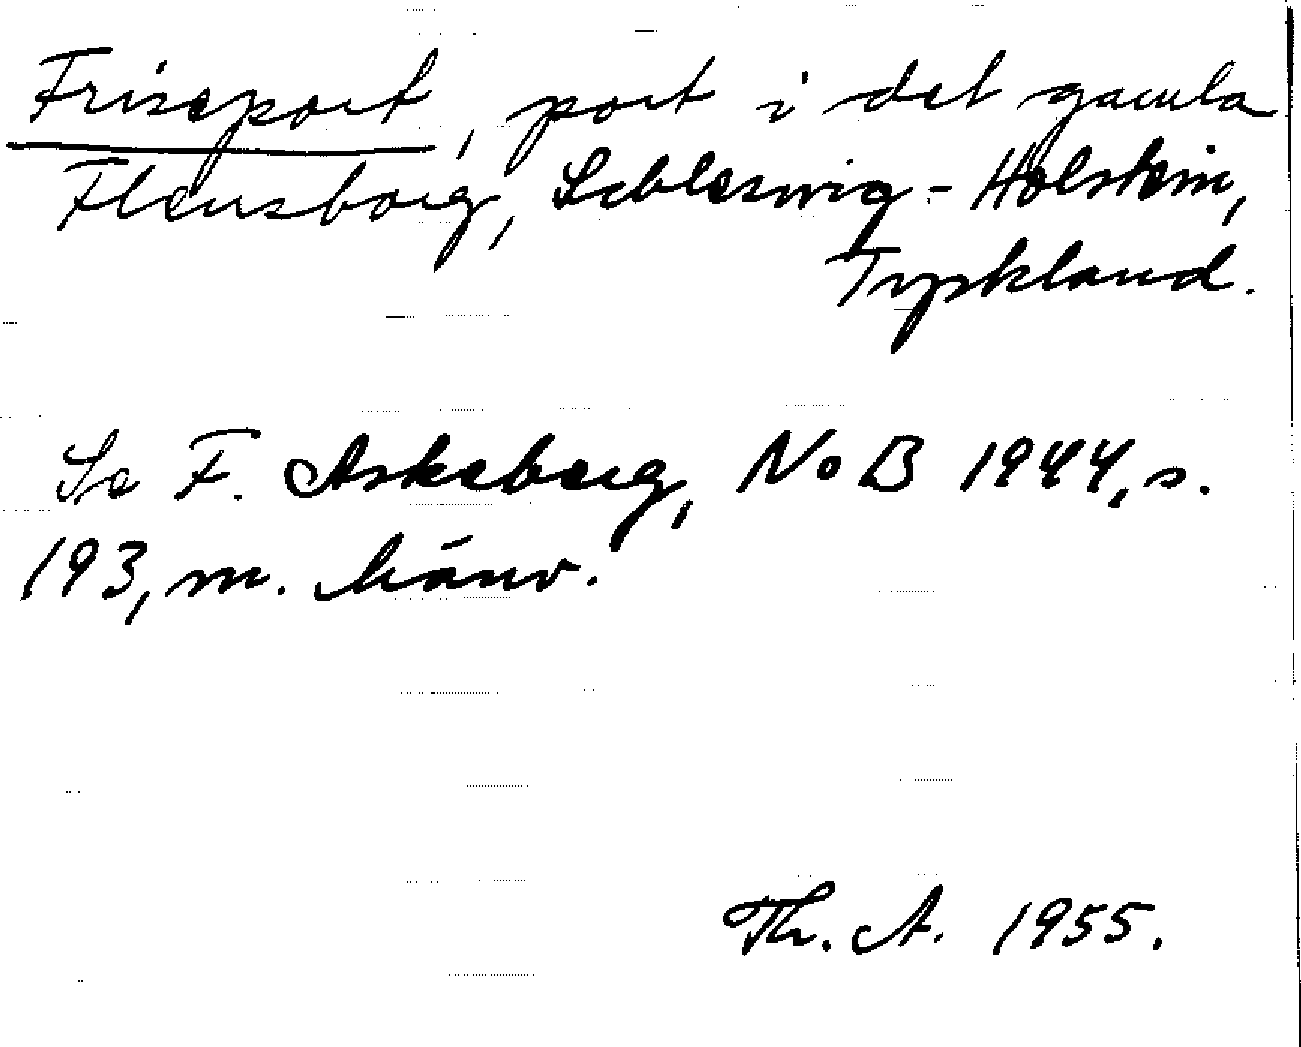 Friseport, port i det gamla
Flensborg, Schleswig-Holstein,
Tyskland.
Se F. Askeberg, NoB 1944, s.
193, m. hänv.
Th. A. 1955.